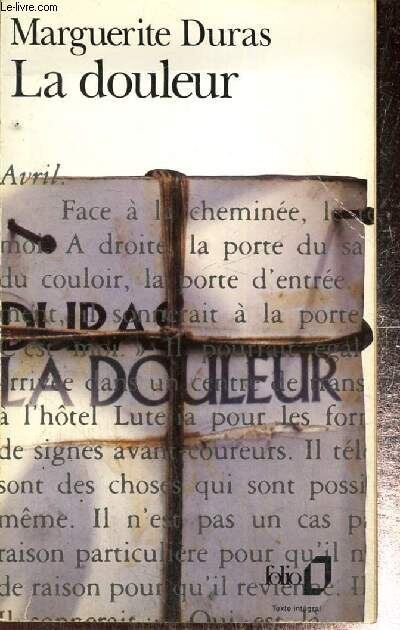 Le-livre.com
Marguerite Duras
La douleur
Avril.
Face à l cheminée, le
moi. A droite, la porte du sa
du couloir, la porte d'entrée.
ment, il sonnerait à la porte
DURAS
c'est moi. » Il pourrait égal
LA DOULEUR
arrivée dans un centre de trans
à l'hôtel Lutetia pour les form
de signes avant-coureurs. Il télé
sont des choses qui sont possi
même. Il n'est pas un cas p
raison particulière pour qu'il n
de raison pour qu'il revienne. Il
Il sonnerait
Qui est là
folio
Texte intégral